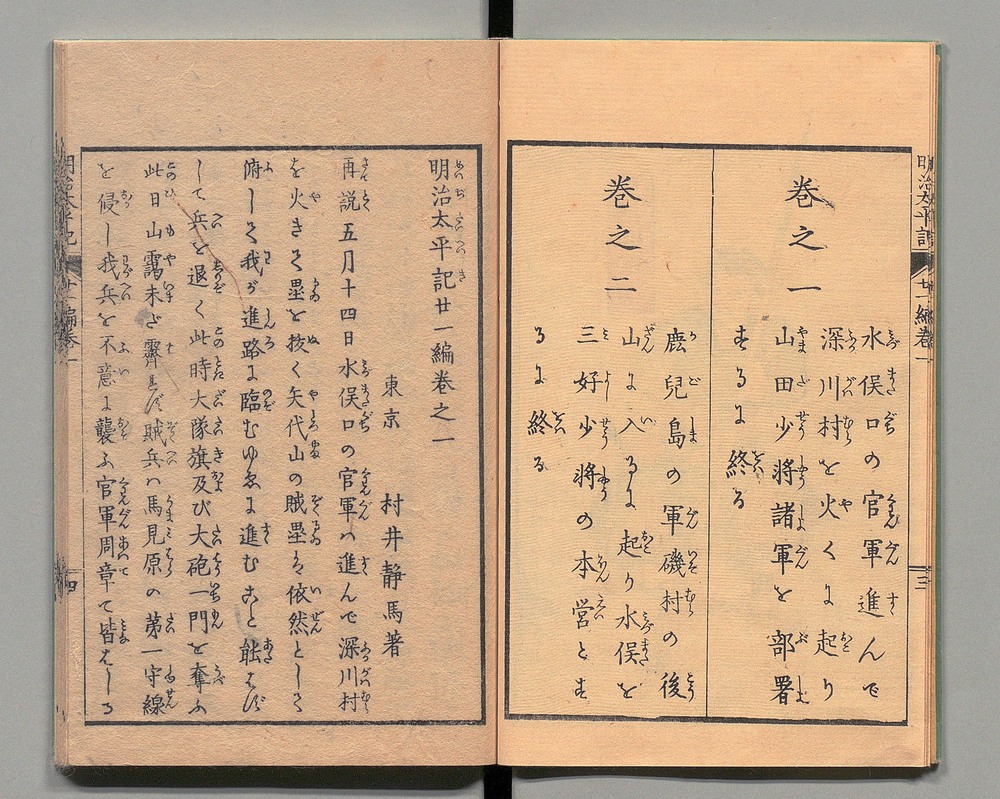 明治太平記 廿一編巻一 三
巻之一
水俣口の官軍進んで
深川村を火くに起り
山田少将諸軍を部署
するに終る
巻之二
鹿児島の軍磯村の後
山に入るに起り水俣を
三好少将の本営とす
るに終る
明治太平記廿一編巻之一
東京 村井静馬著
再説五月十四日水俣口の官軍ハ進んで深川村
を火きて塁を抜く矢代山の賊塁ハ依然として
俯して我が進路に臨むゆゑに進むこと能はず
して兵を退く此時大隊旗及び大砲一門を奪ふ
此日山靄未だ霽れず賊兵ハ馬見原の第一守線
を侵し我兵を不意に襲ふ官軍周章て皆はしる
明治太平記 廿一編巻一 四